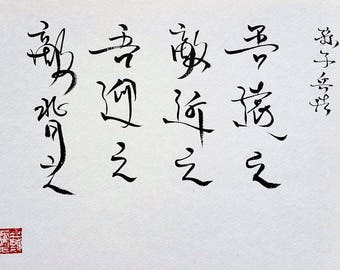 孫子兵法
吾遠之
敵近之
吾迎之
敵背之